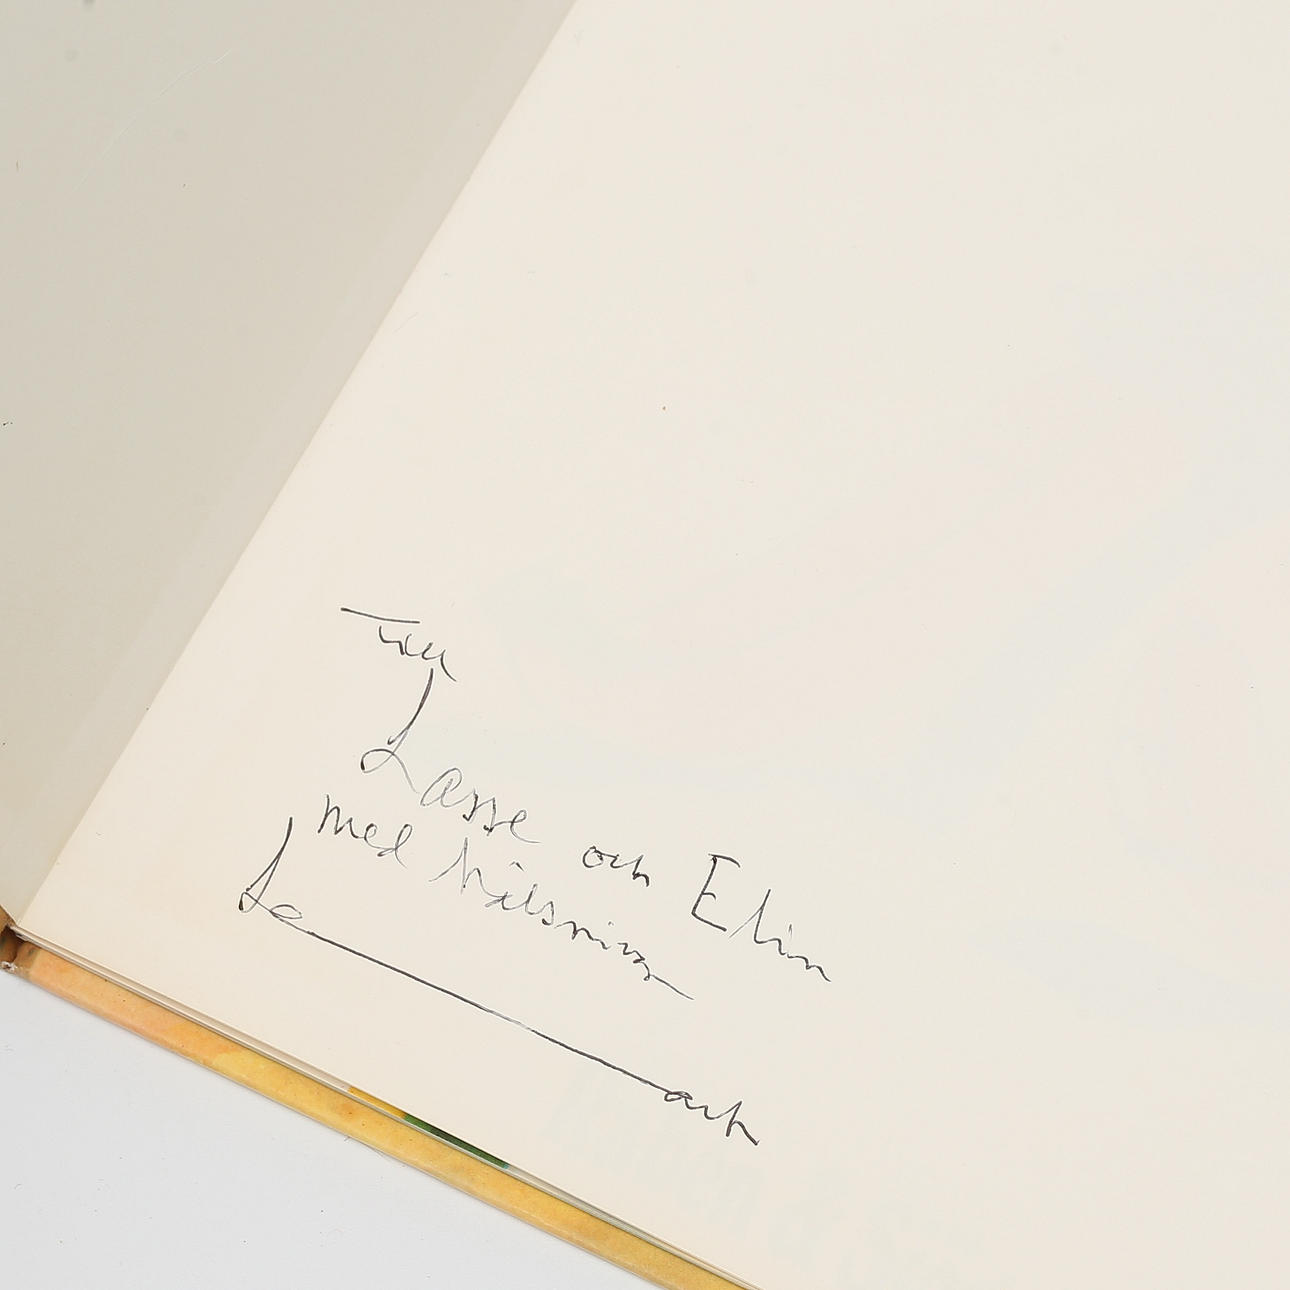 Till
Lasse och Elin
med hälsning